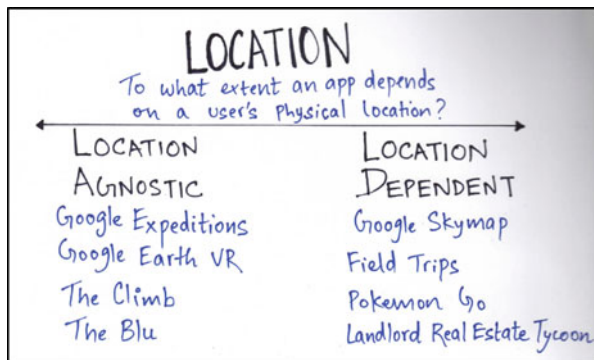 LOCATION
To what extent an app depends
on a user's physical location?
LOCATION
AGNOSTIC
Google Expeditions
Google Earth VR
The Climb
The Blu
LOCATION
DEPENDENT
Google Skymap
Field Trips
Pokemon Go
Landlord Real Estate Tycoon